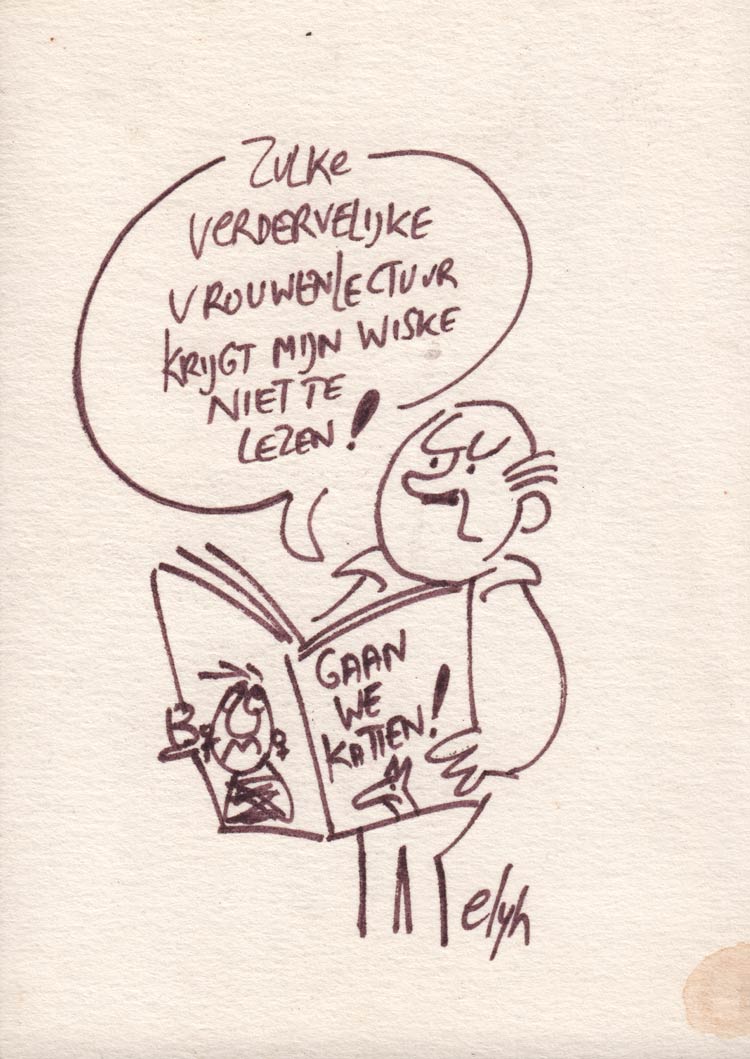 ZULKe
VeRDERVELIJKE
VROUWENLECTUUR
KRIJGT MIJN WISKE
NIET TE
LEZEN!
GAAN
WE
KATTEN!
elyh